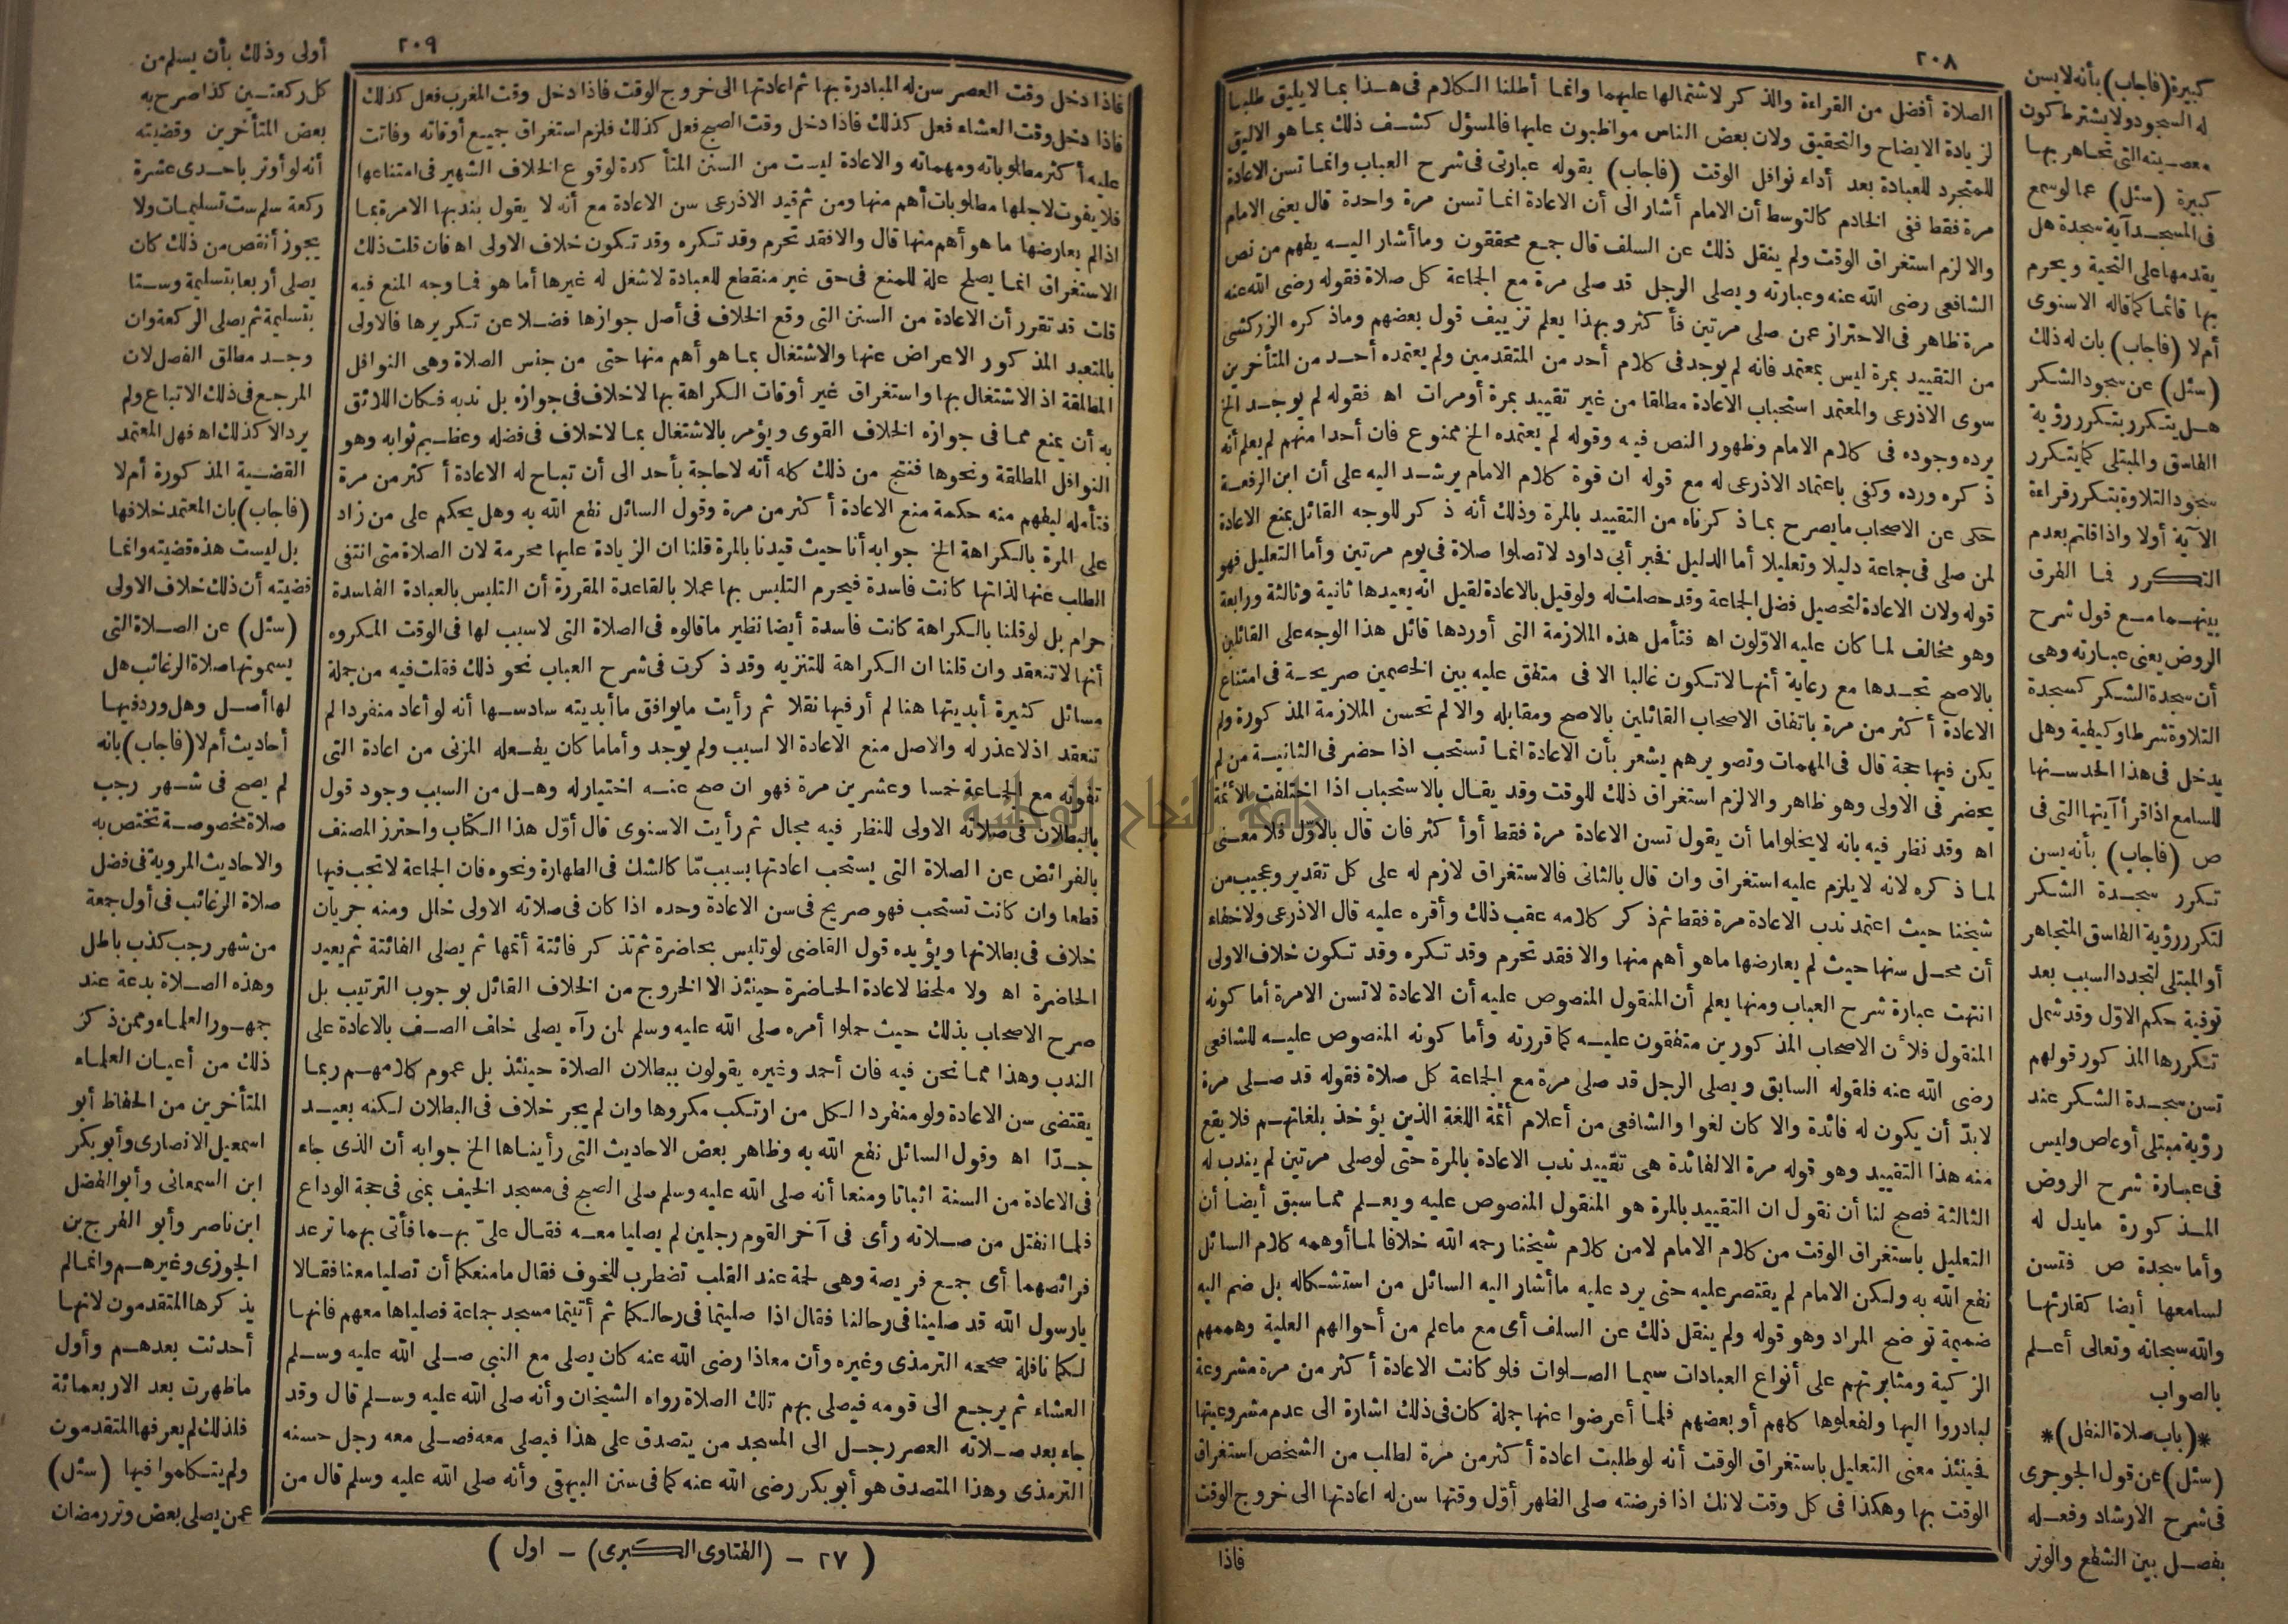 ٢٠٨
الصلاة أفضل من القراءة والذكر لاشتمالها عليهما وانما أطلنا الكلام فى هذا بما لا يليق طلبا
لزيادة الايضاح والتحقيق ولان بعض الناس مواظبون عليها فالمسؤل كشف ذلك بما هو الاليق
للمتجرد للعبادة بعد أداء نوافل الوقت (فاجاب) بقوله عبارتى فى شرح العباب وانما تسن الاعادة
مرة فقط ففى الخادم كالتوسط أن الامام أشار الى أن الاعادة انما تسن مرة واحدة قال يعنى الامام
والا لزم استغراق الوقت ولم ينقل ذلك عن السلف قال جمع محققون وما أشار اليه يفهم من نص
الشافعى رضى الله عنه وعبارته ويصلى الرجل قد صلى مرة مع الجماعة كل صلاة فقوله رضى الله عنه
مرة ظاهر فى الاحتراز عمن صلى مرتين فأكثر وبهذا يعلم تزييف قول بعضهم وما ذكره الزركشى
من التقييد بمرة ليس بمعتمد فانه لم يوجد فى كلام أحد من المتقدمين ولم يعتمده أحد من المتأخرين
سوى الاذرعى والمعتمد استحباب الاعادة مطلقا من غير تقييد بمرة أو مرات اه فقوله لم يوجد الخ
يرده وجوده فى كلام الامام وظهور النص فيه وقوله لم يعتمده الخ ممنوع فان أحدا منهم لم يعلم أنه
ذكره ورده وكفى باعتماد الاذرعى له مع قوله ان قوة كلام الامام يرشد اليه على أن ابن الرفعة
حكى عن الاصحاب ما يصرح بما ذكرناه من التقييد بالمرة وذلك أنه ذكر للوجه القائل بمنع الاعادة
لمن صلى فى جماعة دليلا وتعليلا أما الدليل نخبر أبى داود لا تصلوا صلاة فى يوم مرتين وأما التعليل فهو
قوله ولان الاعادة لتحصيل فضل الجماعة وقد حصلت له ولو قيل بالاعادة لقيل انه يعيدها ثانية وثالثة ورابعة
وهو مخالف لما كان عليه الاولون اه فتأمل هذه الملازمة التى أوردها قائل هذا الوجه على القائلين
بالاصح تجدها مع رعاية أنها لا تكون غالبا الا فى متفق عليه بين الخصمين صريحة فى امتناع
الاعادة أكثر من مرة باتفاق الاصحاب القائلين بالاصح ومقابله والا لم تحسن الملازمة المذكورة ولم
يكن فيها حجة قال فى المهمات وتصويرهم يشعر بأن الاعادة انما تستحب اذا حضر فى الثانية من لم
يحضر فى الاولى وهو ظاهر والا لزم استغراق ذلك للوقت وقد يقال بالاستحباب اذا اختلفت الأئمة
اه وقد نظر فيه بانه لا يخلو اما أن يقول تسن الاعادة مرة فقط أو أكثر فان قال بالاول فلا معنى
لما ذكره لانه لا يلزم عليه استغراق وان قال بالثانى فالاستغراق لازم له على كل تقدير وعجيب من
شيخنا حيث اعتمد ندب الاعادة مرة فقط ثم ذكر كلامه عقب ذلك وأقره عليه قال الاذرعى ولا خفاء
أن محل سنها حيث لم يعارضها ما هو أهم منها والا فقد تحرم وقد تكره وقد تكون خلاف الاولى
انتهت عبارة شرح العباب ومنها يعلم أن المنقول المنصوص عليه أن الاعادة لا تسن الا مرة أما كونه
المنقول فلأن الاصحاب المذكورين متفقون عليه كما قررته وأما كونه المنصوص عليه للشافعى
رضى الله عنه فلقوله السابق ويصلى الرجل قد صلى مرة مع الجماعة كل صلاة فقوله قد صلى مرة
لابد أن يكون له فائدة والا كان لغوا والشافعى من أعلام أئمة اللغة الذين يؤخذ بلغاتهم فلا يقع
منه هذا التقييد وهو قوله مرة الا لفائدة هى تقييد ندب الاعادة بالمرة حتى لو صلى مرتين لم يندب له
الثالثة فصح لنا أن نقول ان التقييد بالمرة هو المنقول المنصوص عليه ويعلم مما سبق أيضا أن
التعليل باستغراق الوقت من كلام الامام لا من كلام شيخنا رحمه الله خلافا لما أوهمه كلام السائل
نفع الله به ولكن الامام لم يقتصر عليه حتى يرد عليه ما أشار اليه السائل من استشكاله بل ضم اليه
ضميمة توضح المراد وهو قوله ولم ينقل ذلك عن السلف أى مع ما علم من أحوالهم العلية وهممهم
الزكية ومثابرتهم على أنواع العبادات سيما الصلوات فلو كانت الاعادة أكثر من مرة مشروعة
لبادروا اليها ولفعلوها كلهم أو بعضهم فلما أعرضوا عنها جملة كان فى ذلك اشارة الى عدم مشروعيتها
فحينئذ معنى التعليل باستغراق الوقت أنه لو طلبت اعادة أكثر من مرة لطلب من الشخص استغراق
الوقت بها وهكذا فى كل وقت لانك اذا فرضته صلى الظهر أول وقتها سن له اعادتها الى خروج الوقت
فاذا
كبيرة (فاجاب) بأنه لا يسن
له السجود ولا يشترط كون
معصيته التى تجاهر بها
كبيرة (سئل) عما لو سمع
فى المسجد آية سجدة هل
يقدمها على التحية ويحرم
بها قائما كما قاله الاسنوى
أم لا (فاجاب) بان له ذلك
(سئل) عن سجود الشكر
هل يتكرر بتكرر رؤية
الفاسق والمبتلى كما يتكرر
سجود التلاوة بتكرر قراءة
الآية أولا واذا قلتم بعدم
التكرر فما الفرق
بينهما مع قول شرح
الروض يعنى عبارته وهى
أن سجدة الشكر كسجدة
التلاوة شرطا وكيفية وهل
يدخل فى هذا الحد سنها
للسامع اذا قرأ آيتها التى فى
ص (فاجاب) بأنه يسن
تكرر سجدة الشكر
لتكرر رؤية الفاسق المتجاهر
أو المبتلى لتجدد السبب بعد
توفية حكم الاول وقد شمل
تكررها المذكور قولهم
تسن سجدة الشكر عند
رؤية مبتلى أو عاص وليس
فى عبارة شرح الروض
المذكورة ما يدل له
وأما سجدة ص فتسن
لسامعها أيضا كقارئها
والله سبحانه وتعالى أعلم
بالصواب
*(باب صلاة النفل)*
(سئل) عن قول الجوجرى
فى شرح الارشاد وفعله
بفصل بين الشفع والوتر
٢٠٩
فاذا دخل وقت العصر سن له المبادرة بها ثم اعادتها الى خروج الوقت فاذا دخل وقت المغرب فعل كذلك
فاذا دخل وقت العشاء فعل كذلك فاذا دخل وقت الصبح فعل كذلك فلزم استغراق جميع أوقاته وفاتت
عليه أكثر مطلوباته ومهماته والاعادة ليست من السنن المتأكدة لوقوع الخلاف الشهير فى امتناعها
فلا يفوت لاجلها مطلوبات أهم منها ومن ثم قيد الاذرعى سن الاعادة مع أنه لا يقول بندبها الا مرة بما
اذا لم يعارضها ما هو أهم منها قال والا فقد تحرم وقد تكره وقد تكون خلاف الاولى اه فان قلت ذلك
الاستغراق انما يصلح علة للمنع فى حق غير منقطع للعبادة لا شغل له غيرها أما هو فما وجه المنع فيه
قلت قد تقرر أن الاعادة من السنن التى وقع الخلاف فى أصل جوازها فضلا عن تكريرها فالاولى
بالمتعبد المذكور الاعراض عنها والاشتغال بما هو أهم منها حتى من جنس الصلاة وهى النوافل
المطلقة اذ الاشتغال بها واستغراق غير أوقات الكراهة بها لا خلاف فى جوازه بل ندبه فكان اللائق
به أن يمنع مما فى جوازه الخلاف القوى ويؤمر بالاشتغال بما لا خلاف فى فضله وعظيم ثوابه وهو
النوافل المطلقة ونحوها فنتج من ذلك كله أنه لا حاجة بأحد الى أن تباح له الاعادة أكثر من مرة
فتأمله ليفهم منه حكمة منع الاعادة أكثر من مرة وقول السائل نفع الله به وهل يحكم على من زاد
على المرة بالكراهة الخ جوابه أنا حيث قيدنا بالمرة قلنا ان الزيادة عليها محرمة لان الصلاة متى انتفى
الطلب عنها لذاتها كانت فاسدة فيحرم التلبس بها عملا بالقاعدة المقررة أن التلبس بالعبادة الفاسدة
حرام بل لو قلنا بالكراهة كانت فاسدة أيضا نظير ما قالوه فى الصلاة التى لا سبب لها فى الوقت المكروه
أنها لا تنعقد وان قلنا ان الكراهة للتنزيه وقد ذكرت فى شرح العباب نحو ذلك فقلت فيه من جملة
مسائل كثيرة أبديتها هنا لم أر فيها نقلا ثم رأيت ما يوافق ما أبديته سادسها أنه لو أعاد منفردا لم
تنعقد اذ لا عذر له والاصل منع الاعادة الا لسبب ولم يوجد وأما ما كان يفعله المزنى من اعادة التى
تفوته مع الجماعة خمسا وعشرين مرة فهو ان صح عنه اختيار له وهل من السبب وجود قول
بالبطلان فى صلاته الاولى للنظر فيه مجال ثم رأيت الاسنوى قال أول هذا الكتاب واحترز المصنف
بالفرائض عن الصلاة التى يستحب اعادتها بسبب ما كالشك فى الطهارة ونحوه فان الجماعة لا تجب فيها
قطعا وان كانت تستحب فهو صريح فى سن الاعادة وحده اذا كان فى صلاته الاولى خلل ومنه جريان
خلاف فى بطلانها ويؤيده قول القاضى لو تلبس بحاضرة ثم تذكر فائتة أتمها ثم يصلى الفائتة ثم يعيد
الحاضرة اه ولا ملحظ لاعادة الحاضرة حينئذ الا الخروج من الخلاف القائل بوجوب الترتيب بل
صرح الاصحاب بذلك حيث حملوا أمره صلى الله عليه وسلم لمن رآه يصلى خلف الصف بالاعادة على
الندب وهذا مما نحن فيه فان أحمد وغيره يقولون ببطلان الصلاة حينئذ بل عموم كلامهم ربما
يقتضى سن الاعادة ولو منفردا لكل من ارتكب مكروها وان لم يجر خلاف فى البطلان لكنه بعيد
جدا اه وقول السائل نفع الله به وظاهر بعض الاحاديث التى رأيناها الخ جوابه أن الذى جاء
فى الاعادة من السنة اثباتا ومنعا أنه صلى الله عليه وسلم صلى الصبح فى مسجد الخيف بمنى فى حجة الوداع
فلما انفتل من صلاته رأى فى آخر القوم رجلين لم يصليا معه فقال علىّ بهما فأتى بهما ترعد
فرائصهما أى جمع فريصة وهى لحمة عند القلب تضطرب للخوف فقال ما منعكما أن تصليا معنا فقالا
يا رسول الله قد صلينا فى رحالنا فقال اذا صليتما فى رحالكما ثم أتيتما مسجد جماعة فصلياها معهم فانها
لكما نافلة صححه الترمذى وغيره وأن معاذا رضى الله عنه كان يصلى مع النبى صلى الله عليه وسلم
العشاء ثم يرجع الى قومه فيصلى بهم تلك الصلاة رواه الشيخان وأنه صلى الله عليه وسلم قال وقد
جاء بعد صلاته العصر رجل الى المسجد من يتصدق على هذا فيصلى معه فصلى معه رجل حسنه
الترمذى وهذا المتصدق هو أبو بكر رضى الله عنه كما فى سنن البيهقى وأنه صلى الله عليه وسلم قال من
أولى وذلك بأن يسلم من
كل ركعتين كذا صرح به
بعض المتأخرين وقضيته
أنه لو أوتر باحدى عشرة
ركعة سلم ست تسليمات ولا
يجوز أنقص من ذلك كان
يصلى أربعا بتسليمة وستا
بتسليمة ثم يصلى الركعة وان
وجد مطلق الفصل لان
المرجع فى ذلك الاتباع ولم
يرد الا كذلك اه فهل المعتمد
القضية المذكورة أم لا
(فاجاب) بان المعتمد خلافها
بل ليست هذه قضيته وانما
قضيته أن ذلك خلاف الاولى
(سئل) عن الصلاة التى
يسمونها صلاة الرغائب هل
لها أصل وهل ورد فيها
أحاديث أم لا (فاجاب) بانه
لم يصح فى شهر رجب
صلاة مخصوصة تختص به
والاحاديث المروية فى فضل
صلاة الرغائب فى أول جمعة
من شهر رجب كذب باطل
وهذه الصلاة بدعة عند
جمهور العلماء وممن ذكر
ذلك من أعيان العلماء
المتأخرين من الحفاظ أبو
اسمعيل الانصارى وأبو بكر
ابن السمعانى وأبو الفضل
ابن ناصر وأبو الفرج بن
الجوزى وغيرهم وانما لم
يذكرها المتقدمون لانها
أحدثت بعدهم وأول
ما ظهرت بعد الاربعمائة
فلذلك لم يعرفها المتقدمون
ولم يتكلموا فيها (سئل)
عمن يصلى بعض وتر رمضان
( ٢٧ - (الفتاوى الكبرى) - اول )
جامعة النجاح الوطنية